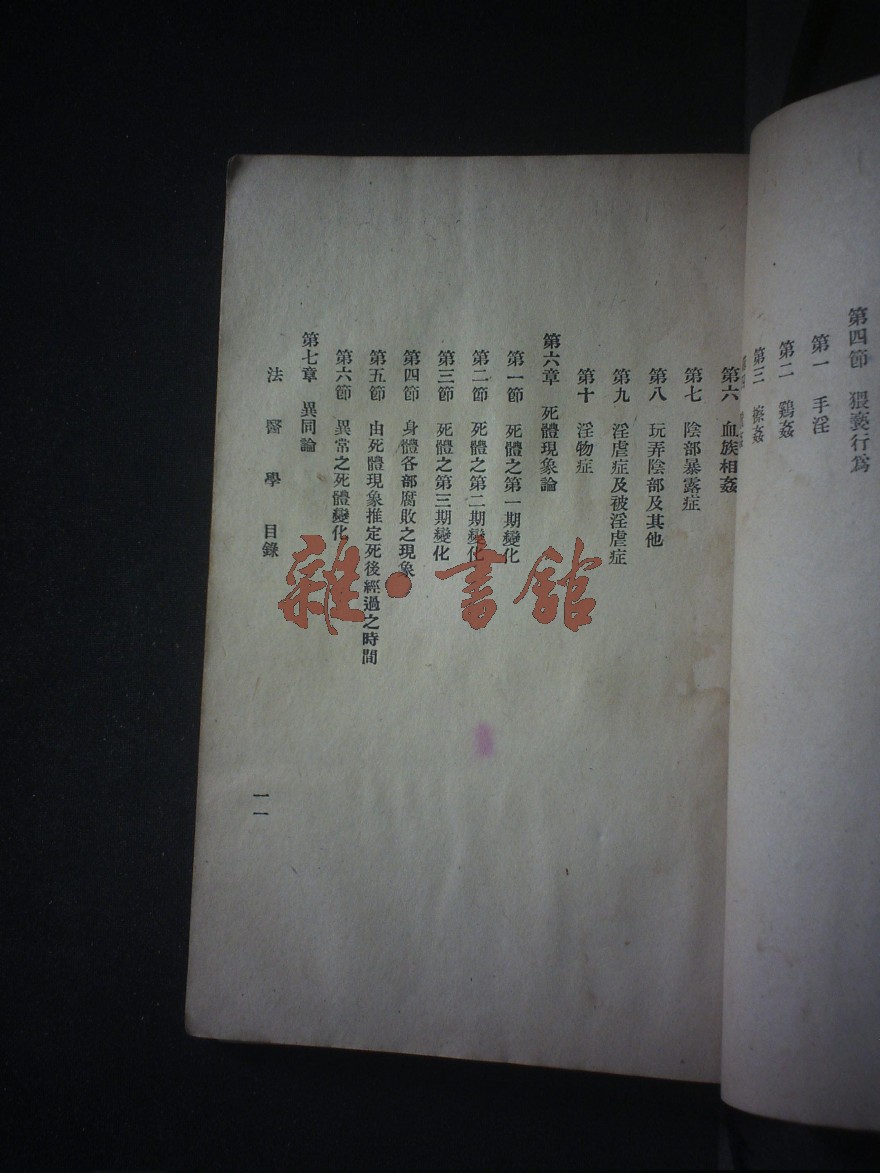 第四節　猥褻行爲
第一　手淫
第二　鷄姦
第三　擦姦
第六　血族相姦
第七　陰部暴露症
第八　玩弄陰部及其他
第九　淫虐症及被淫虐症
第十　淫物症
第六章　死體現象論
第一節　死體之第一期變化
第二節　死體之第二期變化
第三節　死體之第三期變化
第四節　身體各部腐敗之現象
第五節　由死體現象推定死後經過之時間
第六節　異常之死體變化
第七章　異同論
法醫學　目錄
一一
雜·書館